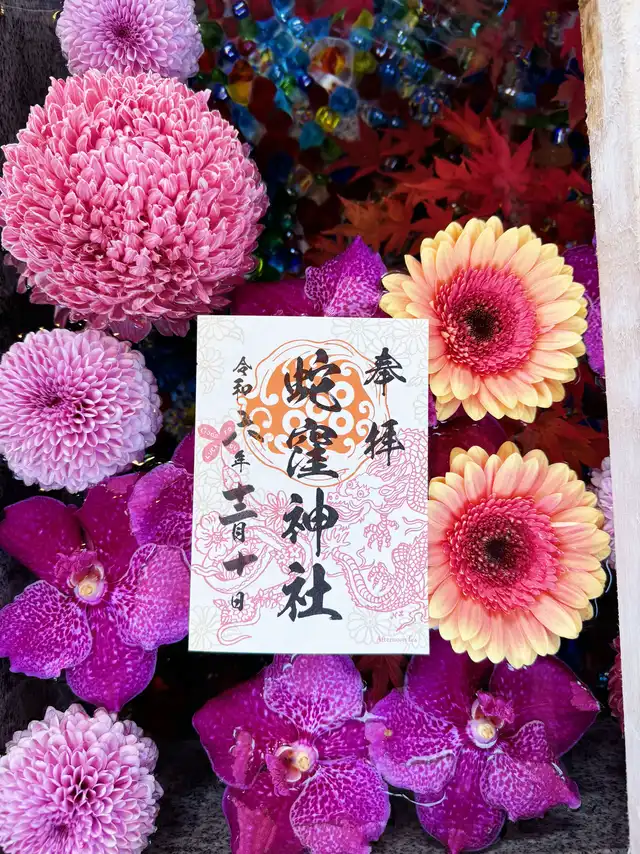 奉拝
蛇窪神社
令和六年十二月十日
Afternoon Tea